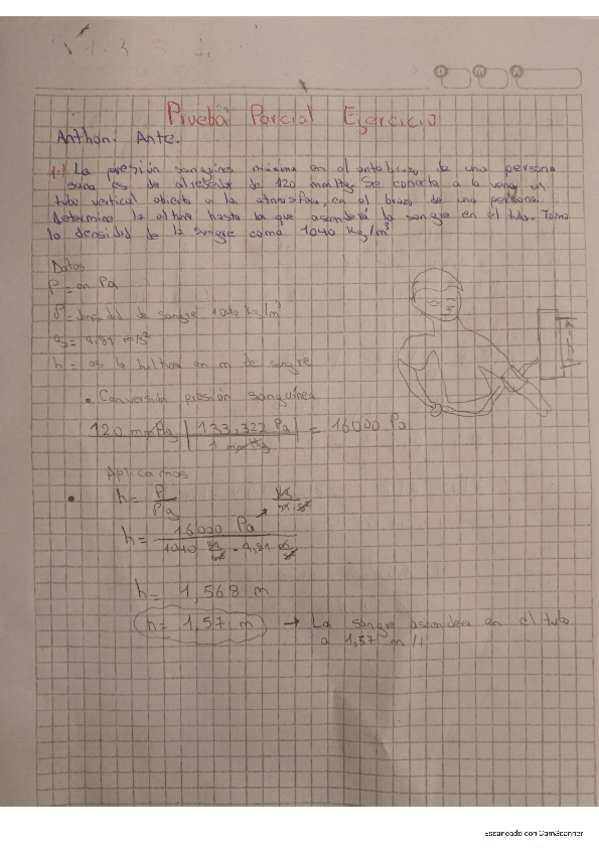 D M A
Prueba Parcial Ejercicio
Anthoni Ante.
1-) La presión sanguínea máxima en el antebrazo de una persona
sana es de alrededor de 120 mmHg, se conecta a la vena un
tubo vertical abierto a la atmosfera, en el brazo de una persona.
Determine la altura hasta la que ascenderá la sangre en el tubo. Tome
la densidad de la sangre como 1040 kg/m³
Datos
P = en Pa
ρ = densidad de sangre 1040 kg/m³
g = 9,81 m/s²
h = es la haltura en m de sangre
• Conversión presión sanguínea
120 mmHg | 133,322 Pa / 1 mmHg | = 16000 Pa
Aplicamos
• h = P / ρg
h = 16000 Pa / 1040 kg/m³ · 9,81 m/s²
h = 1,568 m
h = 1,57 m → La sangre ascendera en el tubo
a 1,57 m //
Escaneado con CamScanner